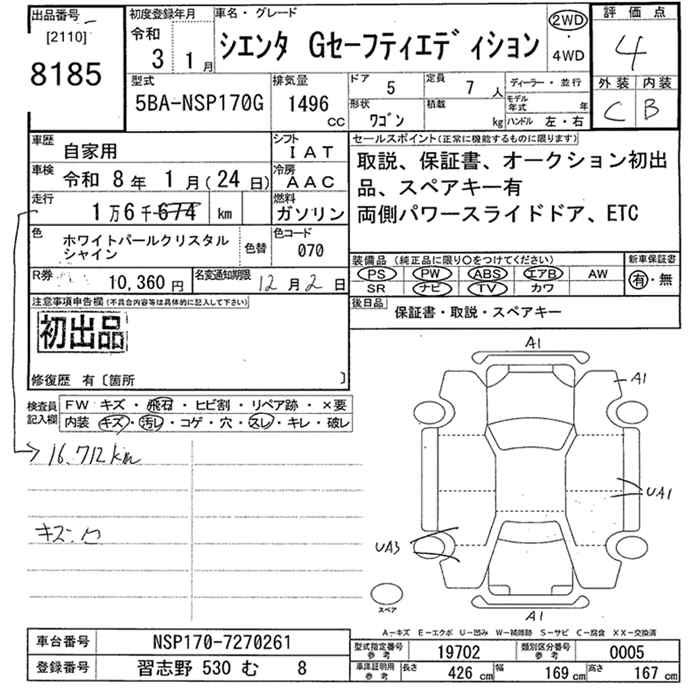 出品番号
[2110]
8185
初度登録年月
令和
3年 1月
車名・グレード
シエンタ Gセーフティエディション
2WD
・
4WD
評価点
4
外装 内装
C B
型式
5BA-NSP170G
排気量
1496 cc
ドア 5
定員 7人
形状 ワゴン
積載 kg
ディーラー・並行
モデル年式 年
ハンドル 左・右
車歴 自家用
シフト IAT
車検 令和 8年 1月(24日)
冷房 AAC
走行 1万6千674 km
燃料 ガソリン
色 ホワイトパールクリスタル
シャイン
色替
色コード 070
R券 10,360円
名変通知期限 12月2日
セールスポイント(正常に機能するものに限ります)
取説、保証書、オークション初出
品、スペアキー有
両側パワースライドドア、ETC
装備品(純正品に限り○をつけてください)
PS PW ABS エアB AW
SR ナビ TV カワ
新車保証書
有・無
後日品 保証書・取説・スペアキー
注意事項申告欄(不具合内容等は具体的に記入して下さい)
初出品
修復歴 有〔箇所 〕
検査員
記入欄
FW キズ・飛石・ヒビ割・リペア跡・×要
内装 キズ・汚レ・コゲ・穴・スレ・キレ・破レ
16,712km
キズ・凹
A1
A1
UA1
UA3
A1
スペア
A-キズ E-エクボ U-凹み W-補修跡 S-サビ C-腐食 XX-交換済
車台番号 NSP170-7270261
登録番号 習志野 530 む 8
型式指定番号 参考 19702
類別区分番号 参考 0005
車庫証明用 参考 長さ 426 cm 幅 169 cm 高さ 167 cm